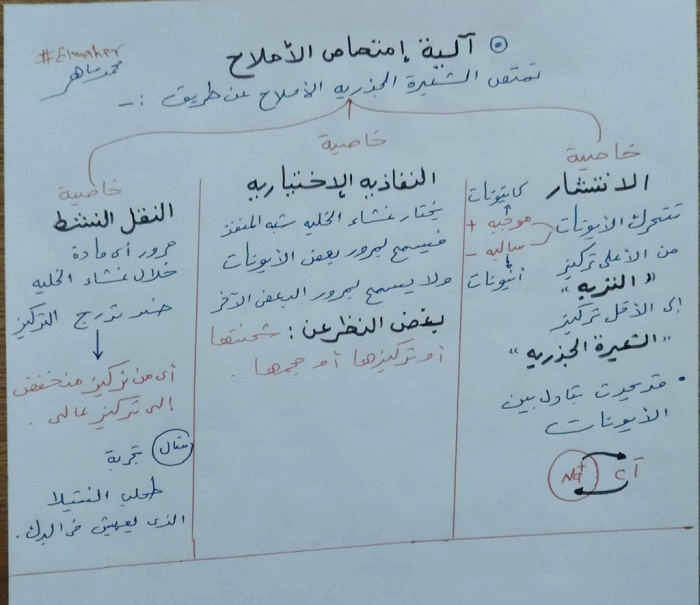 آلية إمتصاص الأملاح
#Elmaher
محمد ماهر
تمتص الشعيرة الجذريه الأملاح عن طريق :-
خاصية
الانتشار
تتحرك الأيونات
موجبه +
سالبه -
كاتيونات
أنيونات
من الأعلى تركيز
"التربه"
إلى الأقل تركيز
"الشعيرة الجذريه"
• قد يحدث تبادل بين
الأيونات
Na+ Cl-
خاصية
النفاذيه الإختياريه
يختار غشاء الخليه شبه المنفذ
فيسمح بمرور بعض الأيونات
ولا يسمح بمرور البعض الآخر
بغض النظر عن : شحنتها
أو تركيزها أو حجمها .
خاصية
النقل النشط
مرور أى مادة
خلال غشاء الخليه
ضد تدرج التركيز
أى من تركيز منخفض
إلى تركيز عالى .
مثال تجربة
طحلب النيتيلا
الذى يعيش فى البرك .